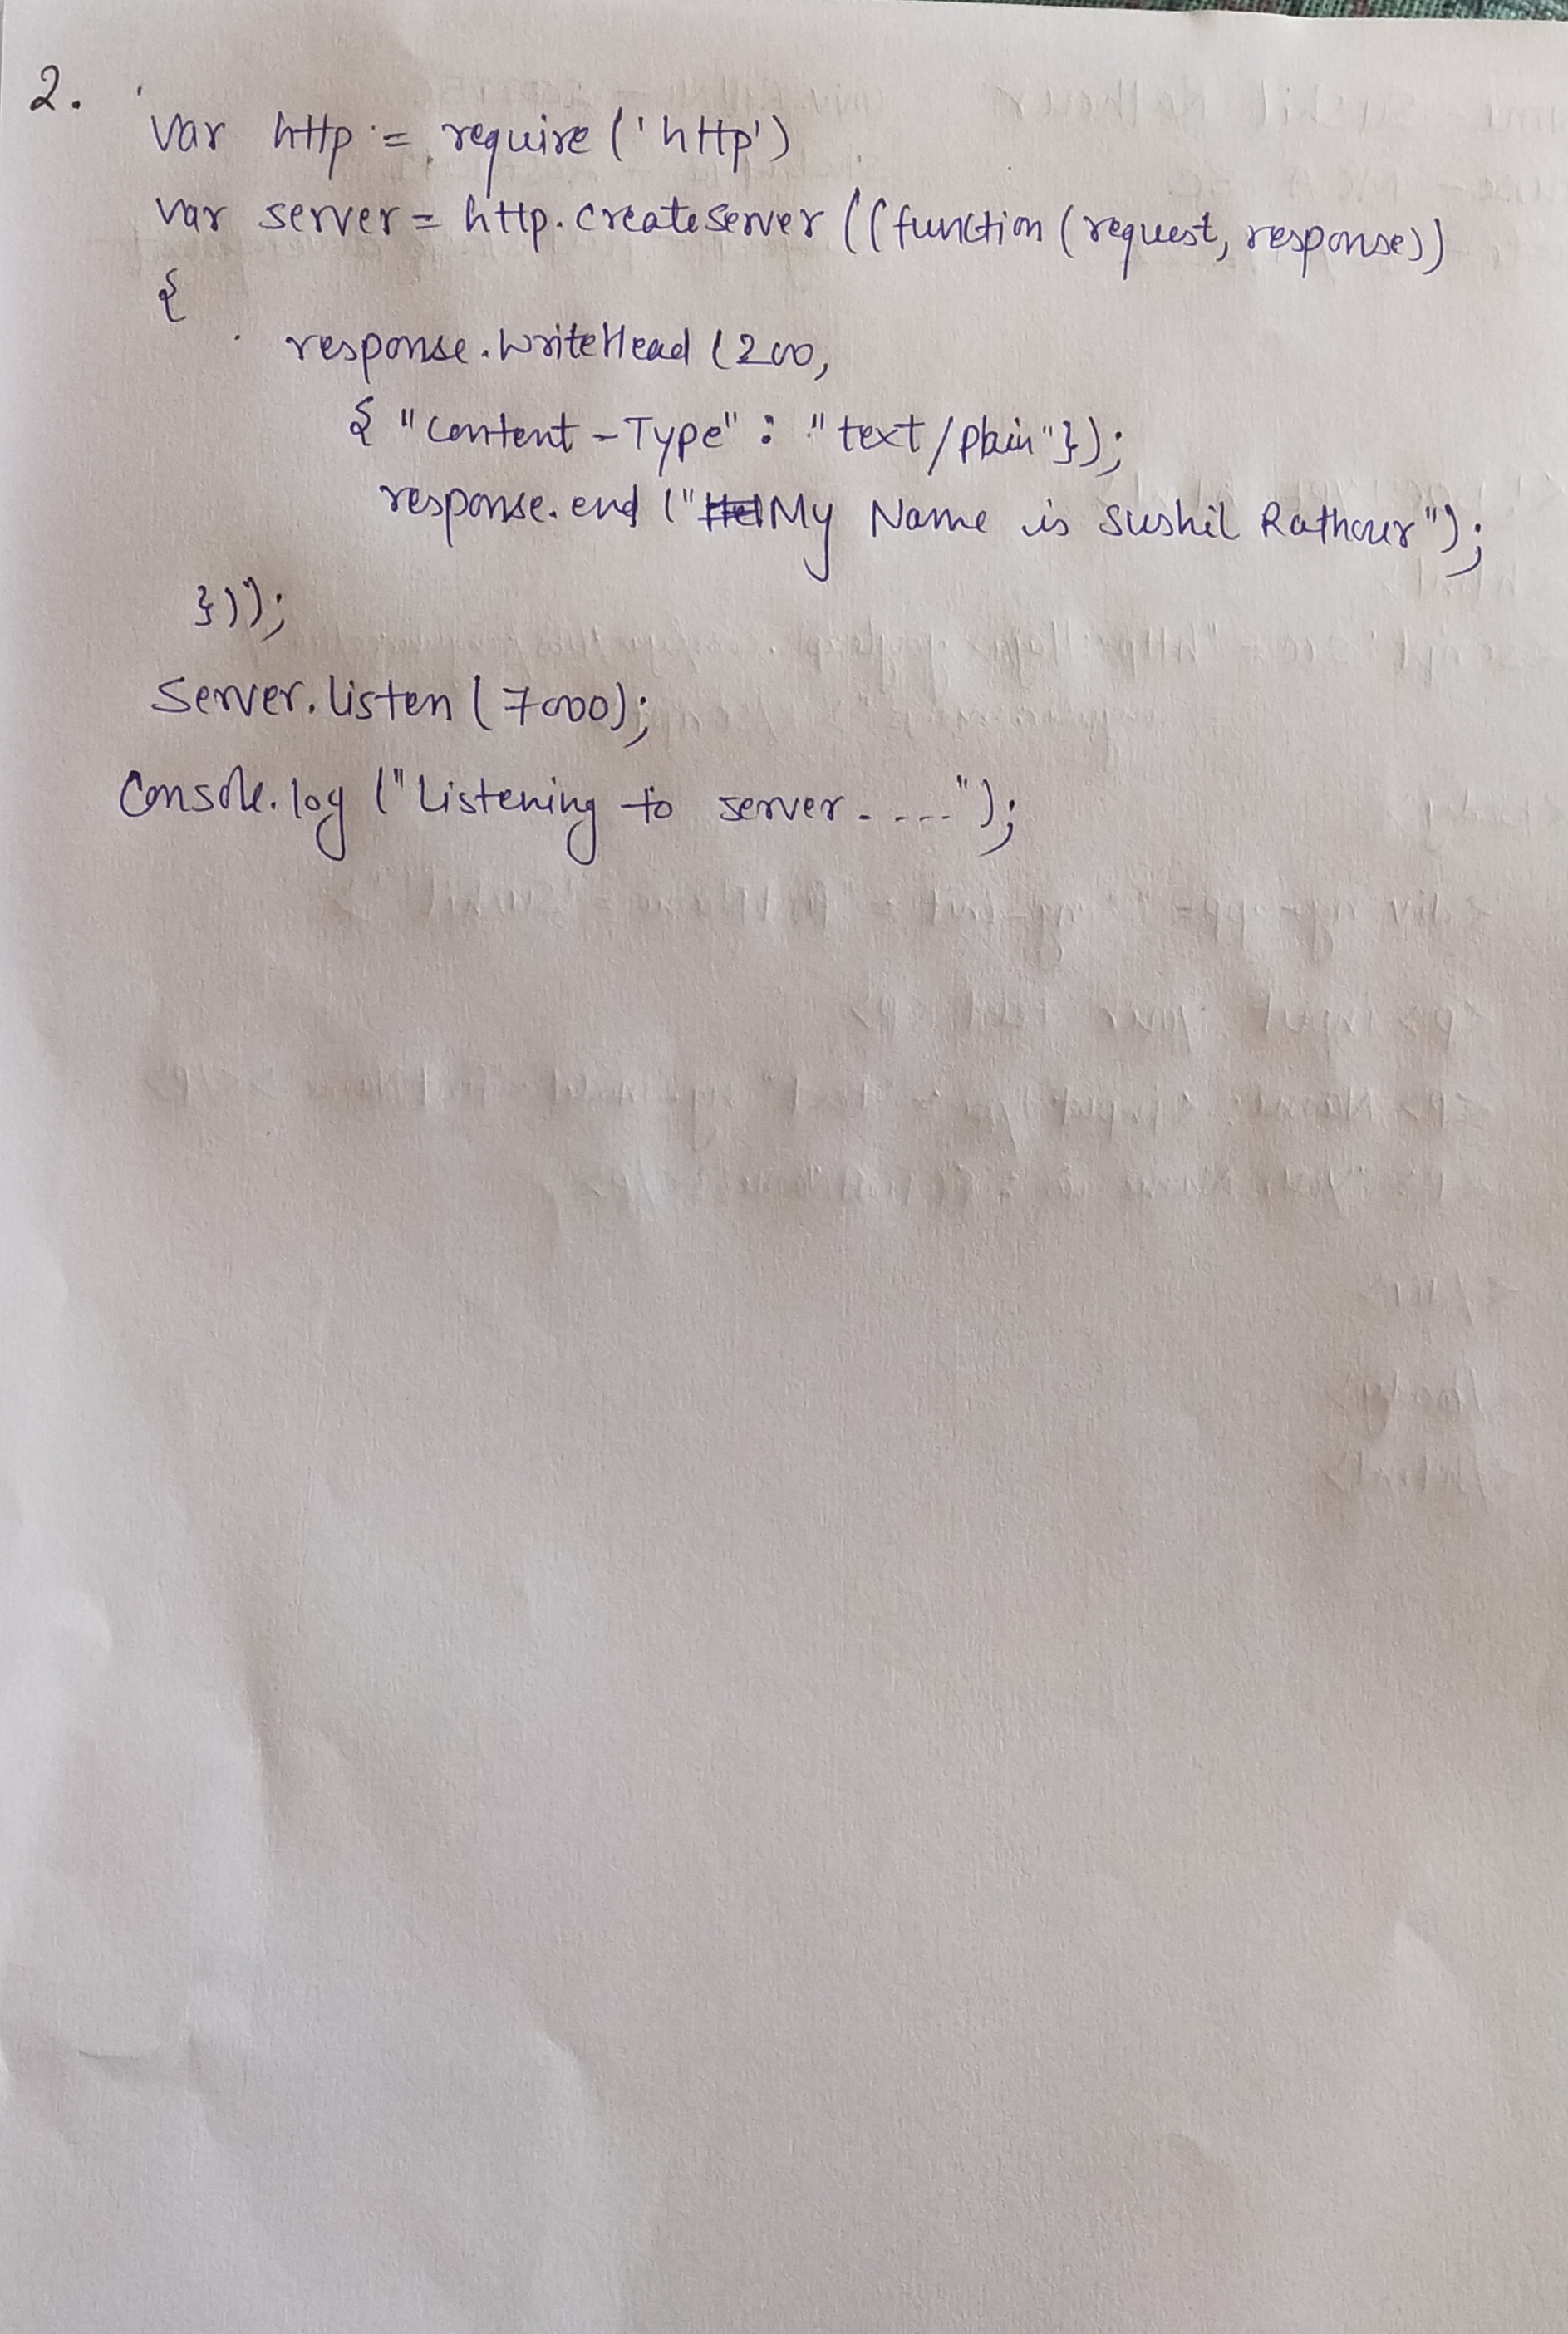 2.
var http = require ('http')
var server = http.createServer ((function (request, response))
{
response.writeHead (200,
{ "Content-Type" : "text/plain"});
response.end ("My Name is Sushil Rathour");
}));
Server.listen (7000);
Console.log ("Listening to server.....");